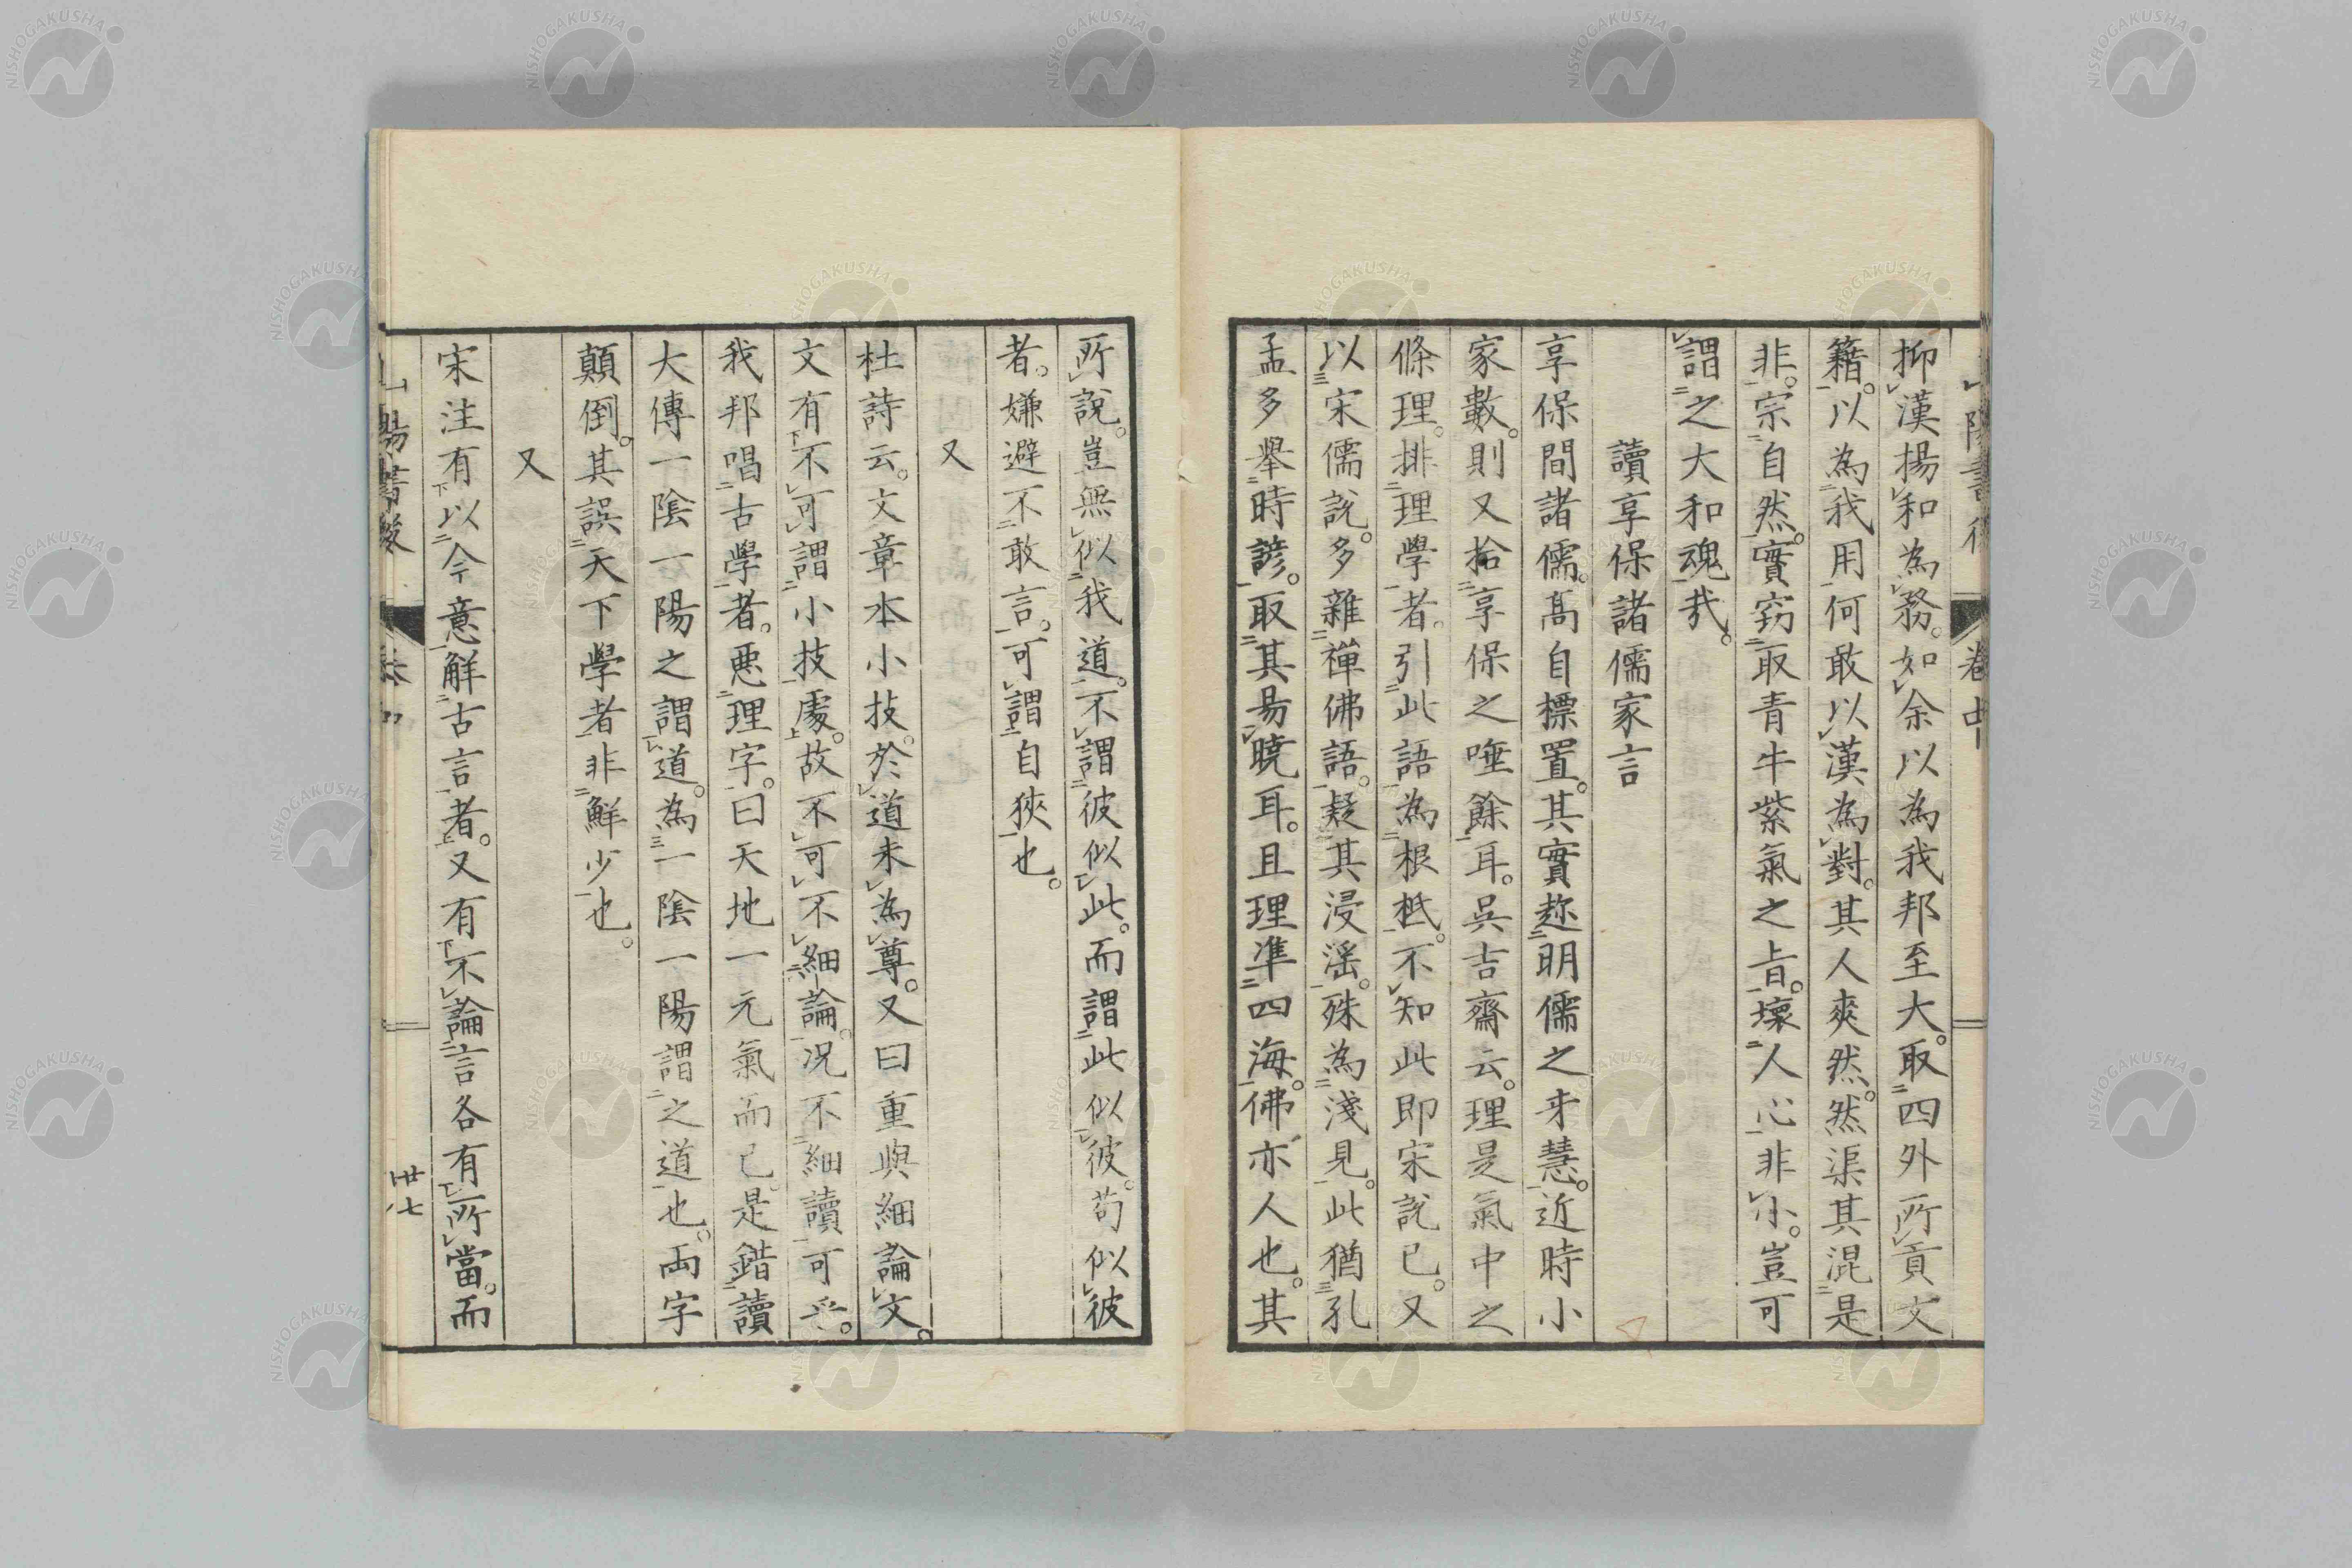 抑漢揚和為務。如余以為我邦至大。取四外所貢文
籍。以為我用。何敢以漢為對。其人爽然。然渠其混是
非。宗自然。實窃取青牛紫氣之旨。壞人心非小。豈可
謂之大和魂哉。
讀享保諸儒家言
享保間諸儒。高自標置。其實趂明儒之才慧。近時小
家數。則又拾享保之唾餘耳。吳吉齋云。理是氣中之
條理。排理學者。引此語為根柢。不知此即宋說已。又
以宋儒說。多雜禪佛語。疑其浸淫。殊為淺見。此猶孔
孟多舉時諺。取其易曉耳。且理準四海。佛亦人也。其
所說。豈無似我道。不謂彼似此。而謂此似彼。苟似彼
者。嫌避不敢言。可謂自狹也。
又
杜詩云。文章本小技。於道未為尊。又曰重與細論文。
文有不可謂小技處。故不可不細論。况不細讀可乎。
我邦唱古學者。惡理字。曰天地一元氣而已。是錯讀
大傳一陰一陽之謂道。為一陰一陽謂之道也。両字
顛倒。其誤天下學者。非鮮少也。
又
宋注有以今意解古言者。又有不論言各有所當。而
卅七
NISHOGAKUSHA